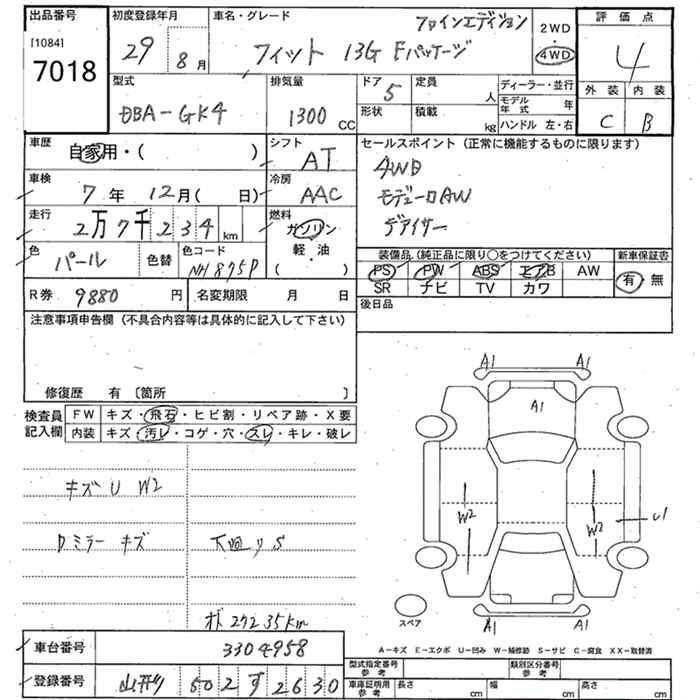 出品番号 初度登録年月 車名・グレード ファインエディション 2WD・4WD 評価点
[1084]
7018 29 8月 フィット 13G Fパッケージ 4
型式 排気量 ドア 定員 ディーラー・並行 外装 内装
DBA-GK4 1300CC 5 人 モデル年式 年 C B
形状 積載 kg ハンドル 左・右
車歴 自家用・( ) シフト AT セールスポイント(正常に機能するものに限ります)
車検 7年12月( 日) 冷房 AAC 4WD
モデューロAW
走行 2万7千234km 燃料 ガソリン・軽油( ) デアイサー
色 パール 色替 色コード NH875P
装備品(純正品に限り○をつけてください) 新車保証書
PS PW ABS エアB AW 有・無
SR ナビ TV カワ
R券 9880円 名変期限 月 日 後日品
注意事項申告欄(不具合内容等は具体的に記入して下さい)
修復歴 有〔箇所 〕
検査員記入欄 FW キズ・飛石・ヒビ割・リペア跡・X要
内装 キズ・汚レ・コゲ・穴・スレ・キレ・破レ
A1 A1
A1
キズ U W2
W2 W2 U1
Dミラー キズ 下廻りS
スペア
オド27235km
A1 A1
A-キズ E-エクボ U-凹み W-補修跡 S-サビ C-腐食 XX-取替済
車台番号 3304958
型式指定番号参考 類別区分番号参考
登録番号 502す2630
車庫証明用参考 長さ cm 幅 cm 高さ cm